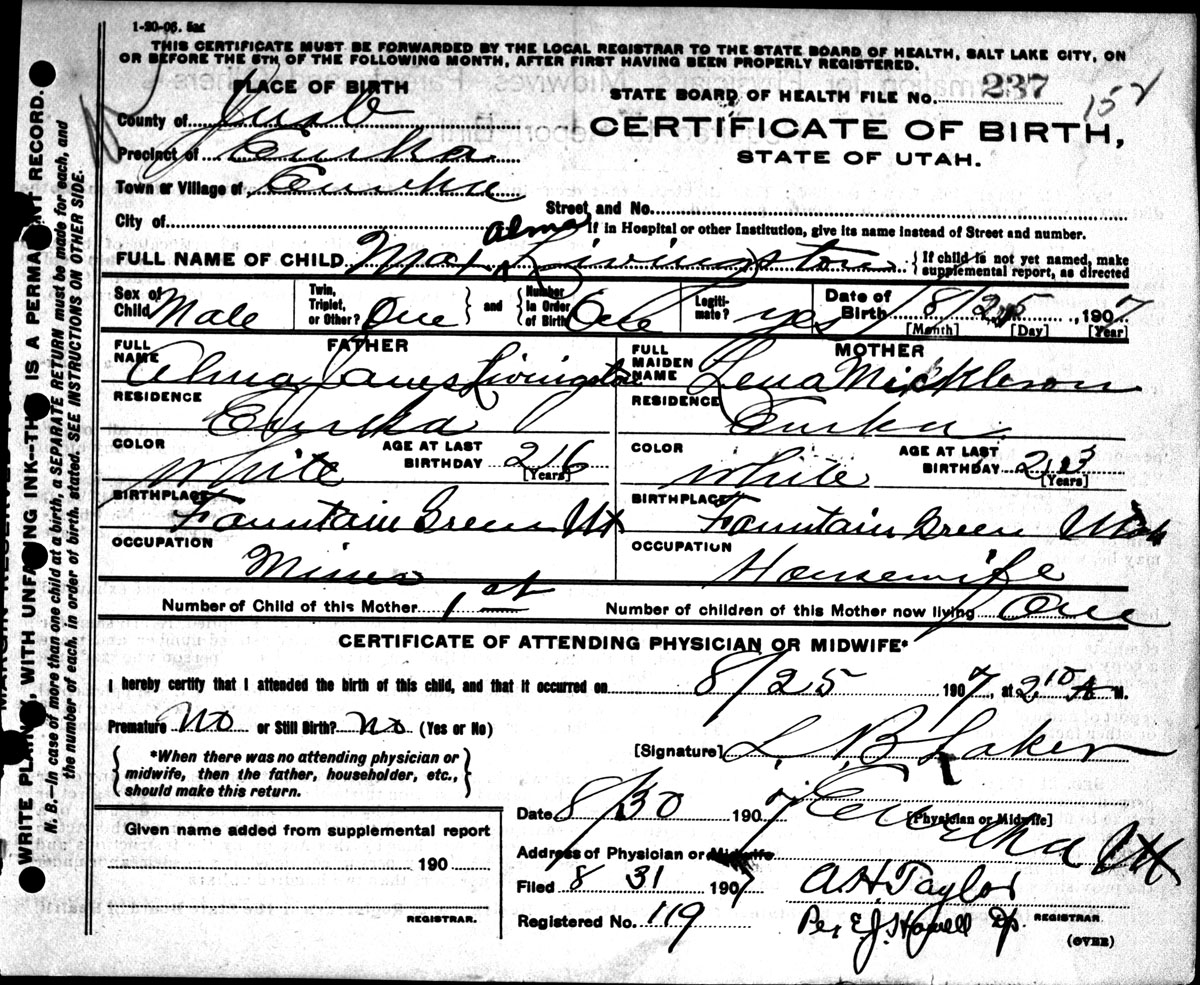 1-20-06. 5m
THIS CERTIFICATE MUST BE FORWARDED BY THE LOCAL REGISTRAR TO THE STATE BOARD OF HEALTH, SALT LAKE CITY, ON
OR BEFORE THE 5TH OF THE FOLLOWING MONTH, AFTER FIRST HAVING BEEN PROPERLY REGISTERED.
PLACE OF BIRTH
STATE BOARD OF HEALTH FILE No. 237
152
County of Juab
CERTIFICATE OF BIRTH,
Precinct of Eureka
STATE OF UTAH.
Town or Village of Eureka
Street and No.
City of
If in Hospital or other Institution, give its name instead of Street and number.
FULL NAME OF CHILD Max Alma Livingston { If child is not yet named, make supplemental report, as directed
Sex of Child Male Twin, Triplet, or Other? One and Number in Order of Birth One Legitimate? yes Date of Birth 8/25, 1907
[Month] [Day] [Year]
FATHER
MOTHER
FULL NAME Alma James Livingston
FULL MAIDEN NAME Lena Mickleson
RESIDENCE Eureka
RESIDENCE Eureka
COLOR White AGE AT LAST BIRTHDAY 26 [Years]
COLOR White AGE AT LAST BIRTHDAY 23 [Years]
BIRTHPLACE Fountain Green Ut
BIRTHPLACE Fountain Green Utah
OCCUPATION Miner
OCCUPATION Housewife
Number of Child of this Mother 1st Number of children of this Mother now living One
CERTIFICATE OF ATTENDING PHYSICIAN OR MIDWIFE*
I hereby certify that I attended the birth of this child, and that it occurred on 8/25 1907, at 2 10 A M.
Premature No or Still Birth? No (Yes or No)
[Signature] L. B. Laker
{ *When there was no attending physician or midwife, then the father, householder, etc., should make this return. }
[Physician or Midwife]
Date 8/30 1907
Address of Physician or Midwife Eureka Ut
Given name added from supplemental report
190
REGISTRAR.
Filed 8 31 1907 A H Taylor
Registered No. 119 Per E.J. Howell Dp. REGISTRAR.
(OVER)
WRITE PLAINLY, WITH UNFADING INK—THIS IS A PERMANENT RECORD.
N. B.—In case of more than one child at a birth, a SEPARATE RETURN must be made for each, and
the number of each, in order of birth, stated. SEE INSTRUCTIONS ON OTHER SIDE.